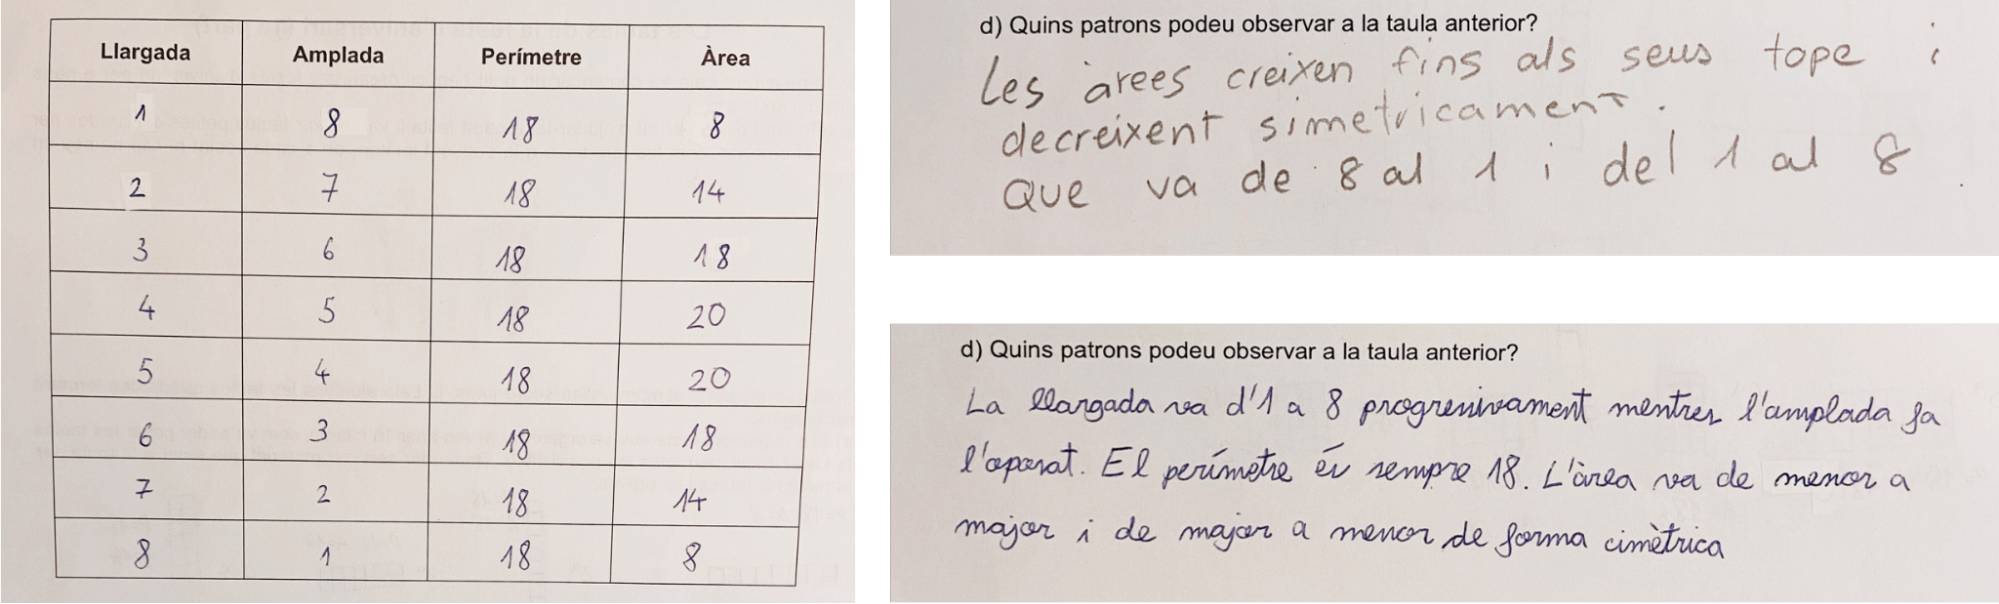 Llargada Amplada Perímetre Àrea
1 8 18 8
2 7 18 14
3 6 18 18
4 5 18 20
5 4 18 20
6 3 18 18
7 2 18 14
8 1 18 8
d) Quins patrons podeu observar a la taula anterior?
Les àrees creixen fins als seus tope i
decreixent simetricament.
Que va de 8 al 1 i del 1 al 8.
d) Quins patrons podeu observar a la taula anterior?
La llargada va d'1 a 8 progressivament mentres l'amplada fa
l'oposat. El perímetre és sempre 18. L'àrea va de menor a
major i de major a menor de forma cimètrica